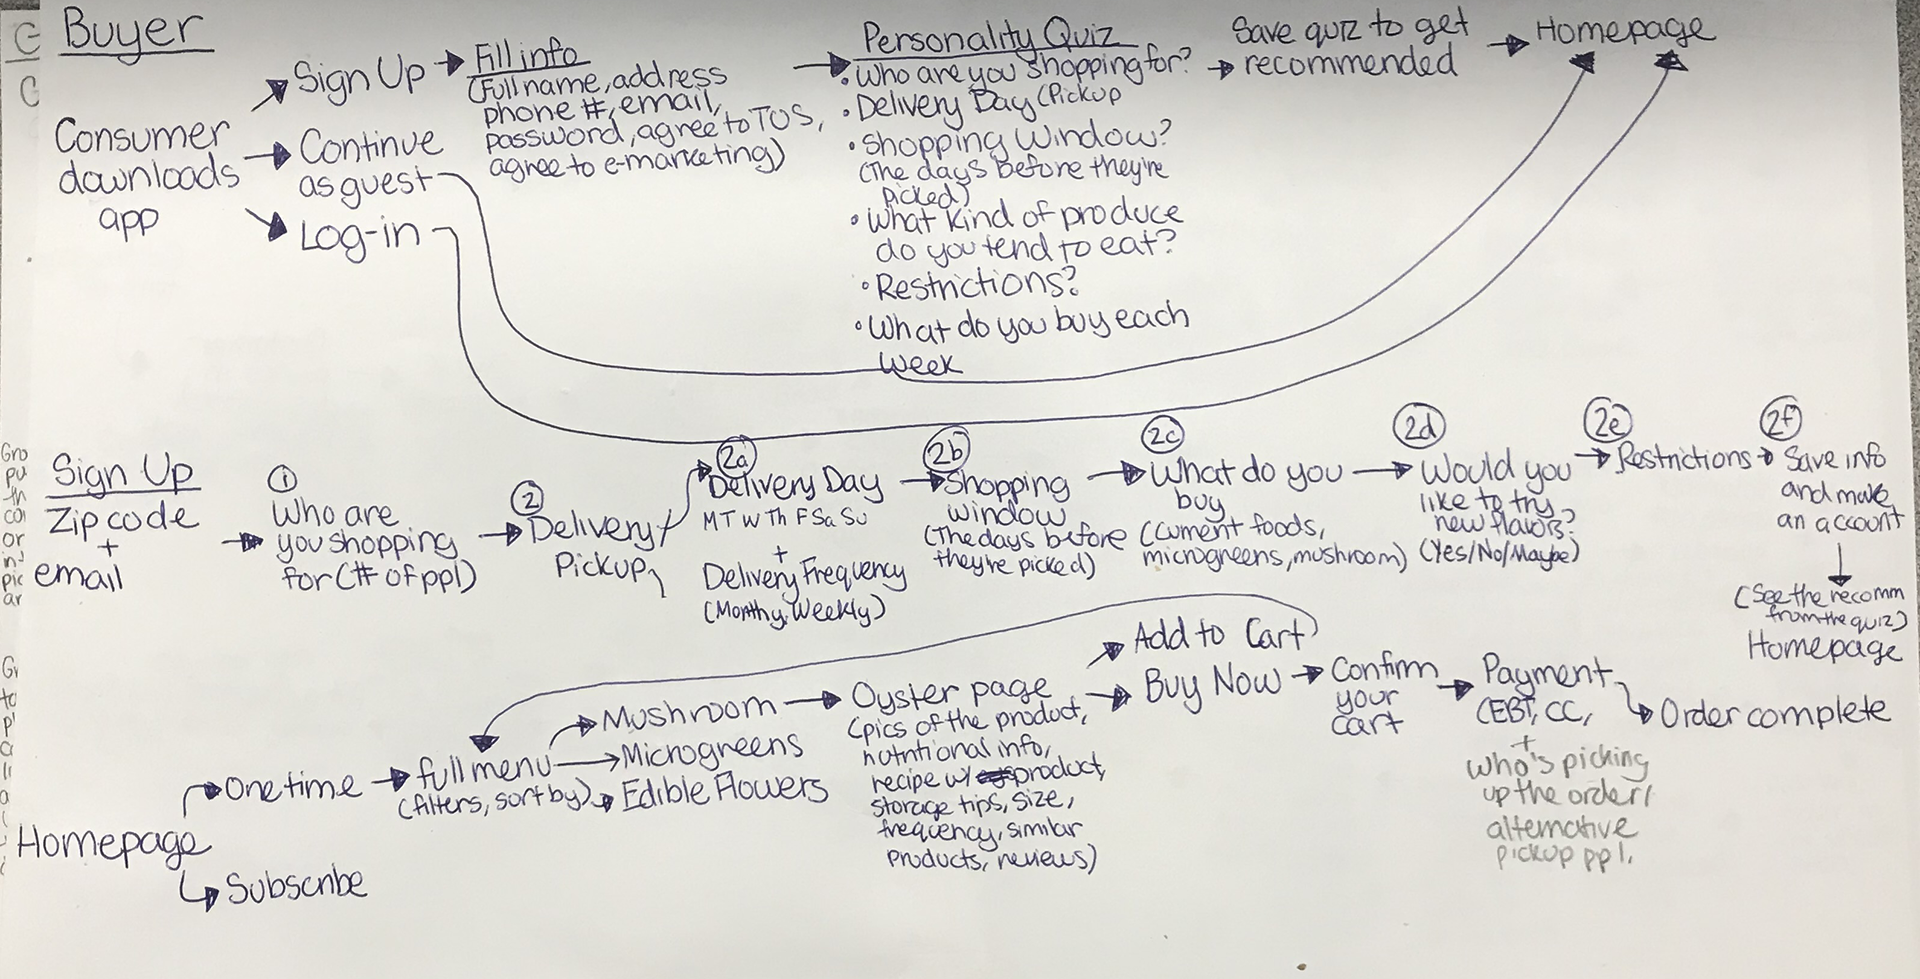 Buyer
Consumer
downloads
app
Sign Up
Continue
as guest
Log-in
Fill info
(Full name, address
phone #, email,
password, agree to TOS,
agree to e-marketing)
Personality Quiz
• Who are you shopping for?
• Delivery Day (Pickup
• Shopping Window?
(The days before they're
picked)
• What kind of produce
do you tend to eat?
• Restrictions?
• What do you buy each
week
Save quiz to get
recommended
Homepage
Sign Up
Zip code
+
email
1
Who are
you shopping
for (# of ppl)
2
Delivery/
Pickup
2a
Delivery Day
M T W Th F Sa Su
+
Delivery Frequency
(Monthy, Weekly)
2b
Shopping
window
(The days before
they're picked)
2c
What do you
buy
(current foods,
microgreens, mushroom)
2d
Would you
like to try
new flavors?
(Yes/No/Maybe)
2e
Restrictions
2f
Save info
and make
an account
(See the recomm
from the quiz)
Homepage
Homepage
One time
Subscribe
full menu
(filters, sort by)
Mushroom
Microgreens
Edible Flowers
Oyster page
(pics of the product,
nutritional info,
recipe w/ product,
storage tips, size,
frequency, similar
products, reviews)
Add to Cart
Buy Now
Confirm
your
cart
Payment
(EBT, CC,
+
who's picking
up the order/
alternative
pickup ppl.
Order complete